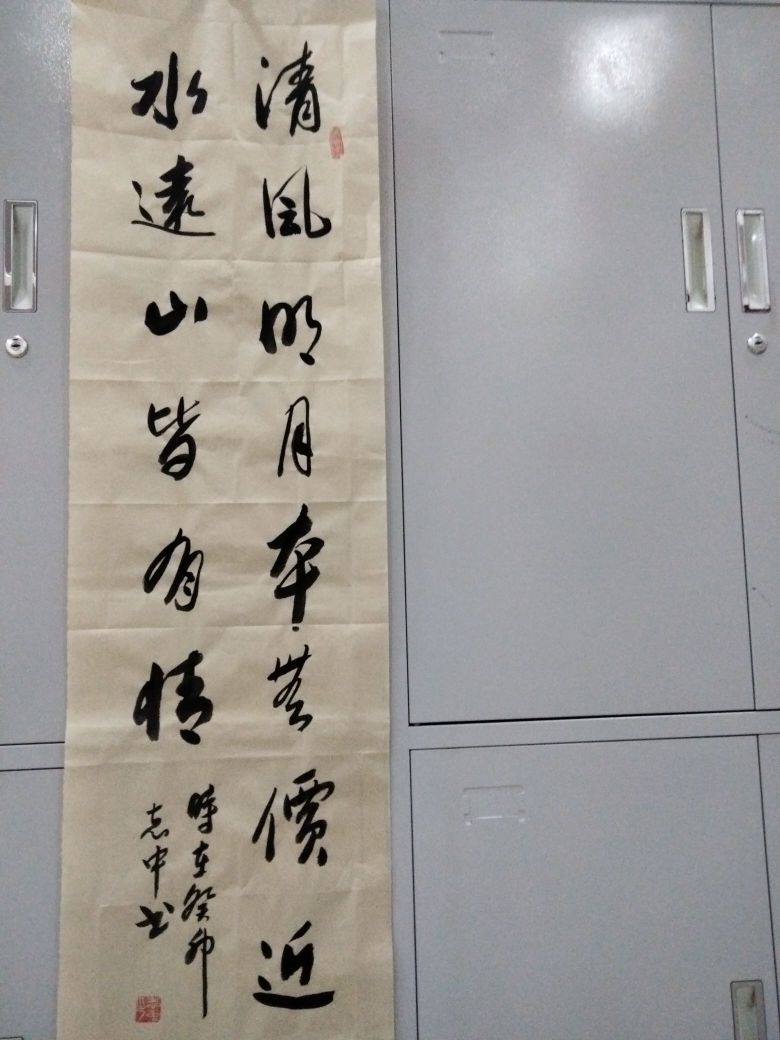 清風明月本無價近
水遠山皆有情
時在癸卯
志中书